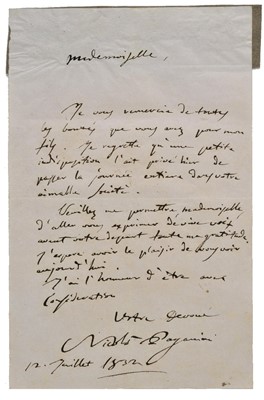 Mademoiselle,
Je vous remercie de toutes
les bontés que vous avez pour mon
fils. Je regrette qu'une petite
indisposition l'ait privé hier de
passer la journée entière dans votre
aimable société.
Veuillez me permettre mademoiselle
d'aller vous exprimer de vive voix
avant votre depart toute ma gratitude.
J'espere avoir le plaisir de vous voir
aujourd'hui.
J'ai l'honneur d'être avec
Considération
Votre Devoué
Nicolò Paganini
12. Juillet 1832